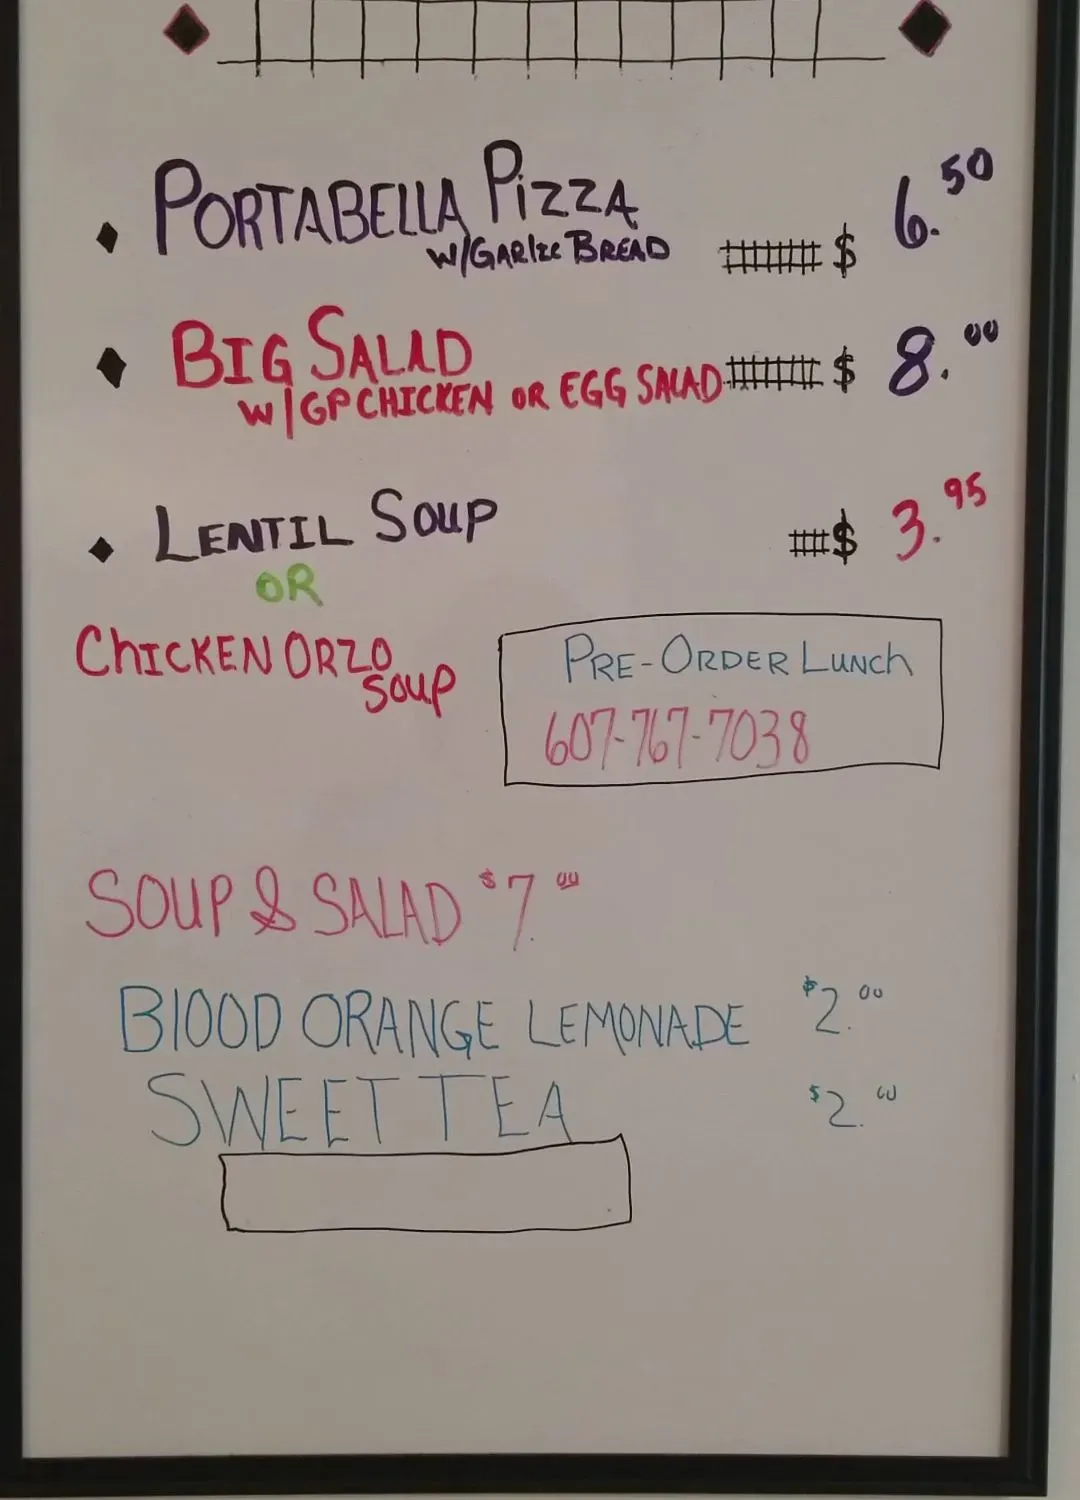 PORTABELLA PIZZA
W/GARlIC BREAD $ 6.50
BIG SALAD
W/GP CHICKEN OR EGG SALAD $ 8.00
LENTIL SOUP $ 3.95
OR
CHICKEN ORZO
SOUP
PRE-ORDER LUNCH
607-767-7038
SOUP & SALAD $7.00
BlOOD ORANGE LEMONADE $2.00
SWEET TEA $2.00